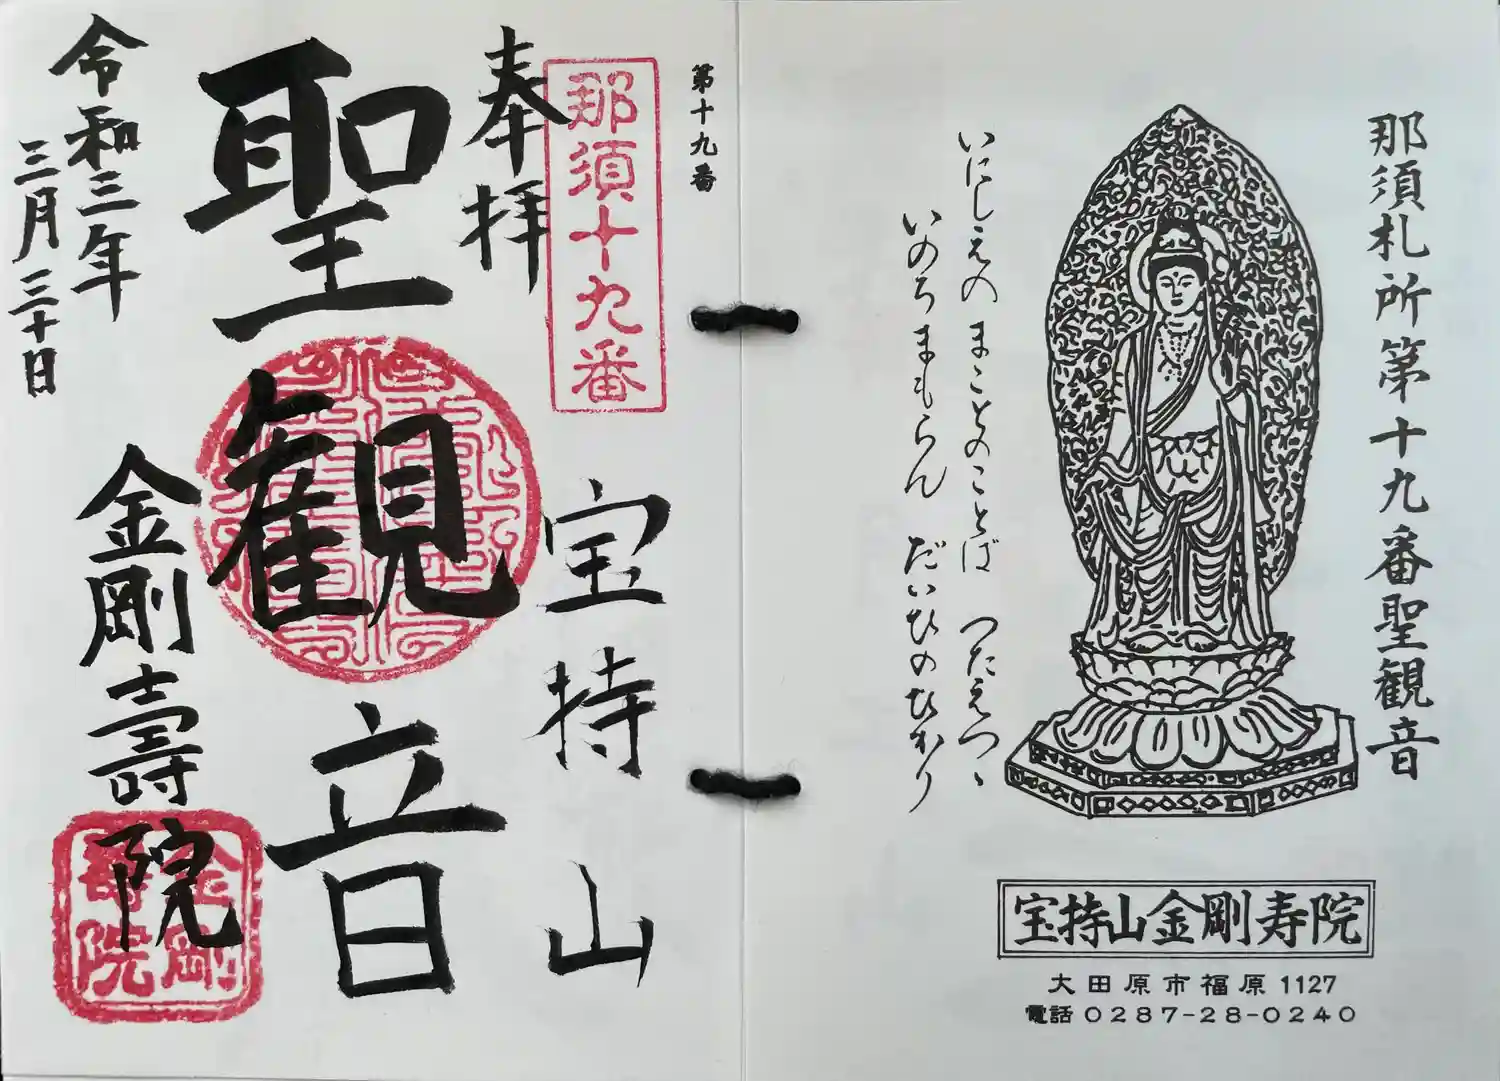 那須札所第十九番聖観音
いにしえの まことのことば つたえつゝ
いのちまもらん だいひのひかり
宝持山金剛寿院
大田原市福原1127
電話 0287-28-0240
第十九番
那須十九番
奉拝
宝持山
聖観音
令和三年
三月三十日
金剛壽院
金剛
壽院